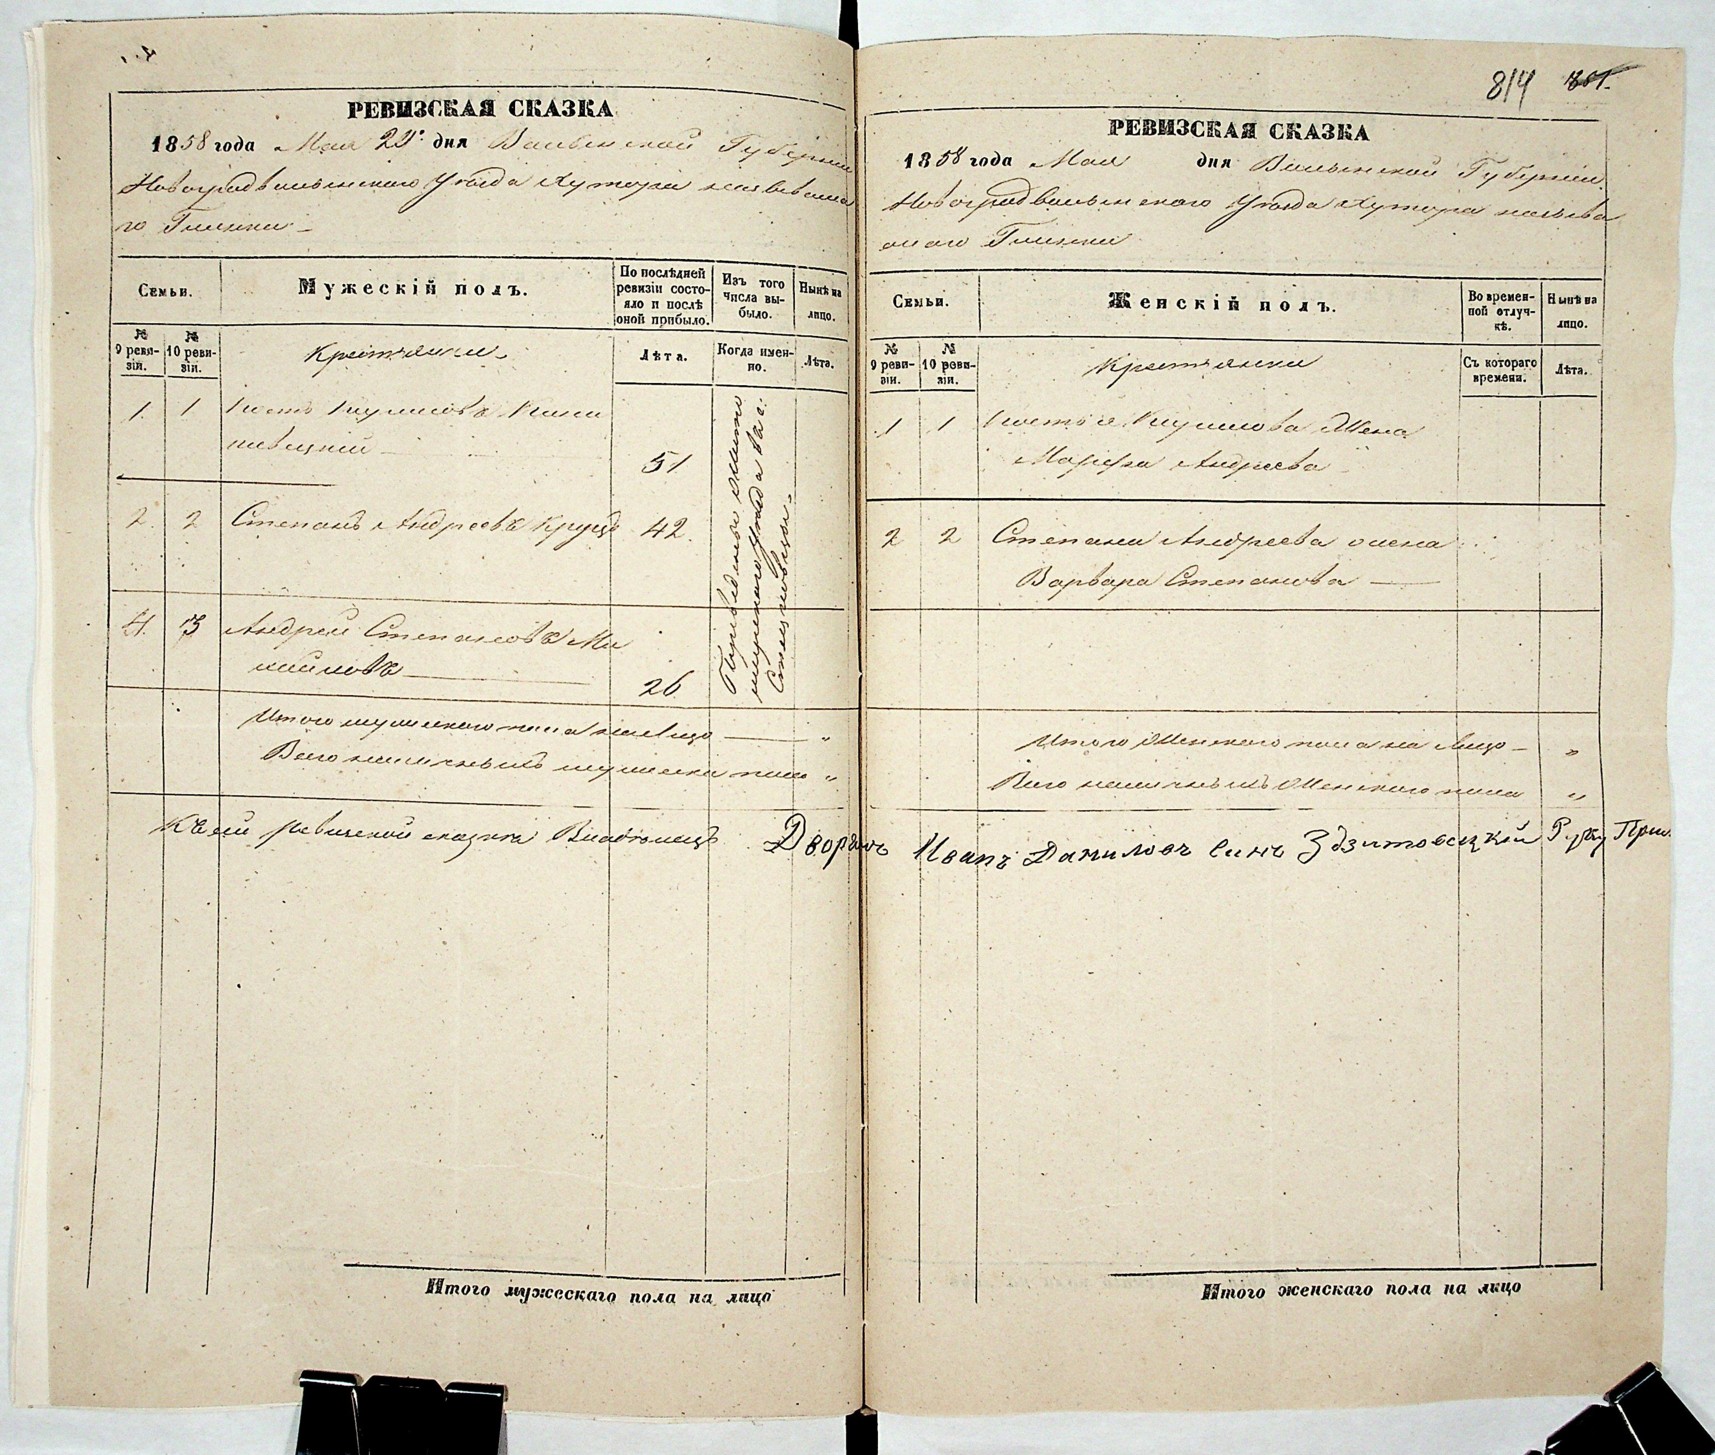 РЕВИЗСКАЯ СКАЗКА
1858 года Мая 22 дня Волынской Губернии
Новоградволынского Уезда Хутора называема
го Глинки
Семьи.
Мужескій полъ.
По послѣдней ревизіи состояло и послѣ оной прибыло.
Изъ того числа выбыло.
Нынѣ на лицо.
№ 9 ревизіи.
№ 10 ревизіи.
Крестьяне
Лѣта.
Когда именно.
Лѣта.
1. 1
51
2. 2 Степанъ Андреевъ 42.
4. 3 Андрей Степановъ
26
Итого мужеского пола на лицо — "
Всего наличныхъ мужеска пола "
Къ сей ревизской сказке Владѣлецъ Дворянъ Иванъ Даниловъ Синъ Здзитовецкій Руку При.
Итого мужескаго пола на лицо
814 801.
РЕВИЗСКАЯ СКАЗКА
1858 года Мая дня Волынской Губернии
Новоградволынского Уезда Хутора называ
емаго Глинки
Семьи.
Женскій полъ.
Во временной отлучкѣ.
Нынѣ на лицо.
№ 9 ревизіи.
№ 10 ревизіи.
Крестьянки
Съ котораго времени.
Лѣта.
1 1 Жена
Андреева
2 2 Степана Андреева жена
Варвара Степанова
Итого Женского пола на лицо — "
Всего наличныхъ Женского пола "
Итого женскаго пола на лицо